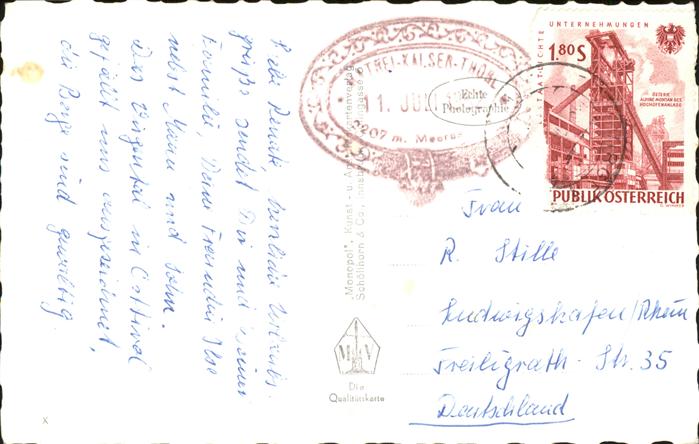 Liebe Renate, herzliche Urlaubs-
grüsse sendet Dir und Deiner
Familie, Deine Freundin Ilse
nebst Mann und Sohn.
Das in Osttirol
gefällt uns ausgezeichnet,
die Berge sind gewaltig.
X
"Monopol", Kunst- u.
Schöllhorn & Co., Innsbruck
M V
Die
Qualitätskarte
DREI-KAISER-THÖRL
11. JULI
2207 m. Meeres
Echte
Photographie
UNTERNEHMUNGEN
1.80 S
ÖSTERR.
ALPINE MONTAN GES
HOCHOFENANLAGE
PUBLIK ÖSTERREICH
Frau
R. Stille
Ludwigshafen/Rhein
Freiligrath-Str. 35
Deutschland